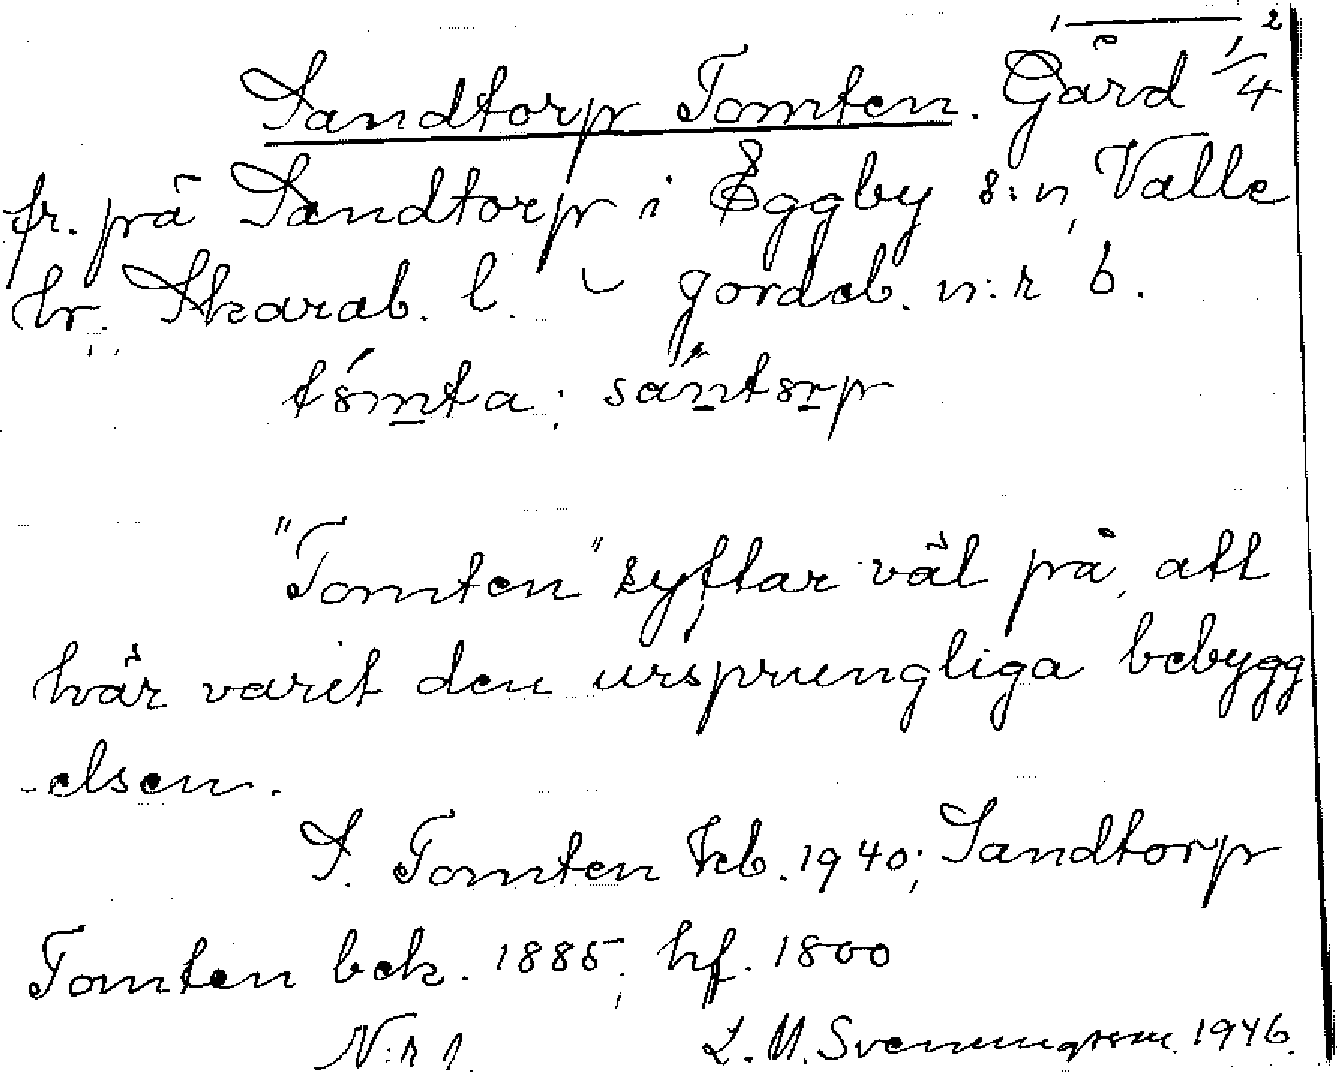 1 — 2
Sandtorp Tomten. Gård 1/4
fr. på Sandtorp i Eggby s:n, Valle
hr. Skarab. l. jordeb. n:r 6.
tómta; sántorp
"Tomten" syftar väl på, att
här varit den ursprungliga bebygg
-elsen.
S. Tomten Kcb. 1940; Sandtorp
Tomten bek. 1885, hf. 1800
N:r 1. L. M. Svenungsson 1946.